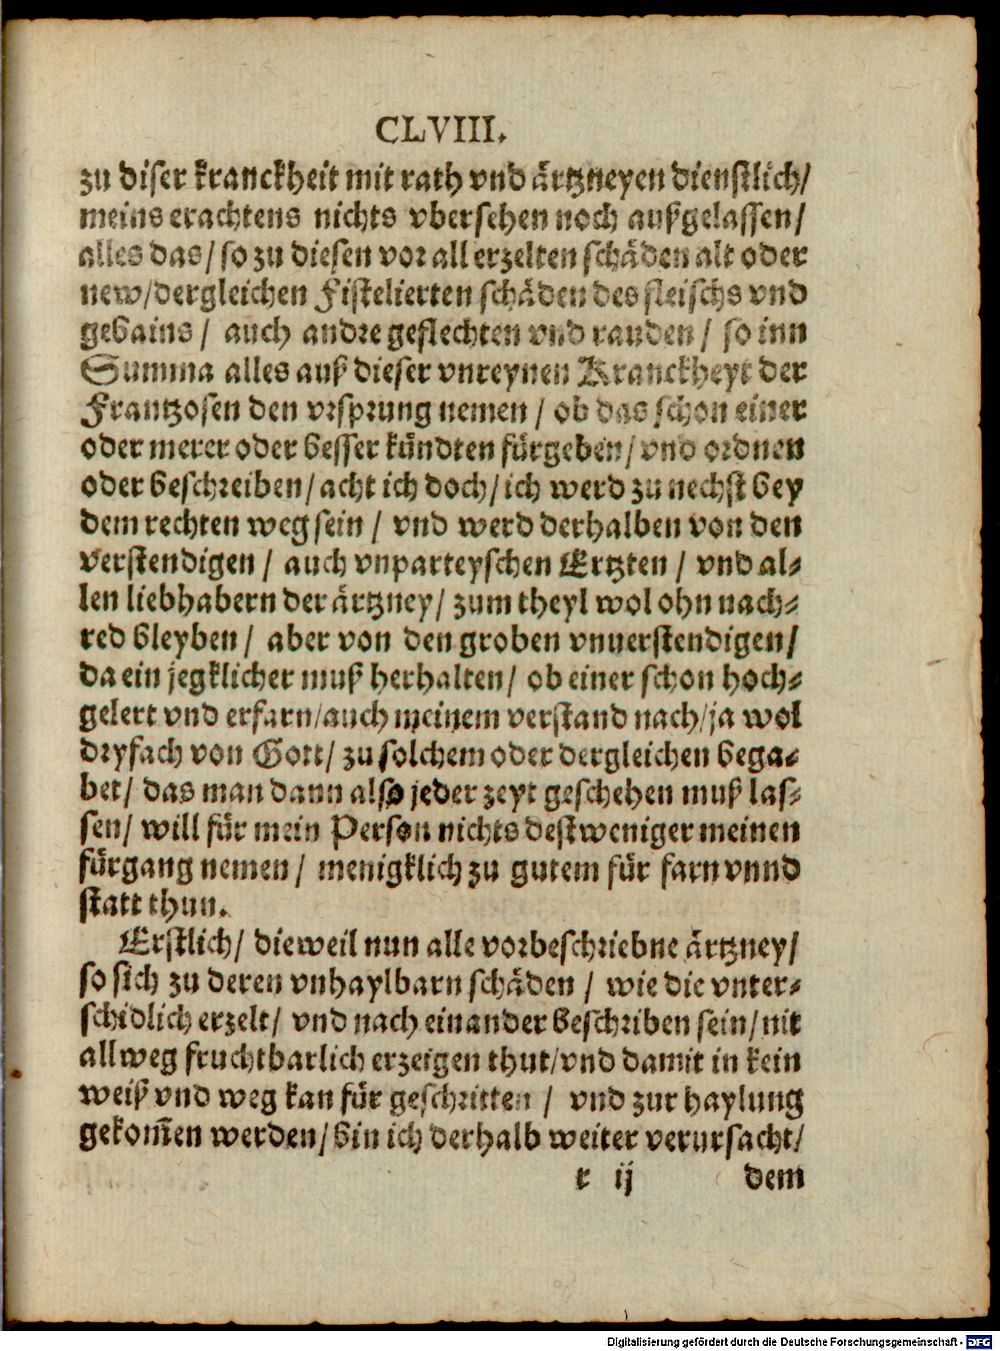 CLVIII.
zu diser kranckheit mit rath vnd ärtzneyen dienstlich/
meins erachtens nichts vbersehen noch außgelassen/
alles das/ so zu diesen vor all erzelten schäden alt oder
new/dergleichen Fistelierten schäden des fleischs vnd
gebains/ auch andre geflechten vnd rauden/ so inn
Summa alles auß dieser vnreynen Kranckheyt der
Frantzosen den vrsprung nemen/ ob das schon einer
oder merer oder besser kündten fürgeben/ vnd ordnen
oder beschreiben/ acht ich doch/ ich werd zu nechst bey
dem rechten weg sein/ vnd werd derhalben von den
verstendigen/ auch vnparteyschen Ertzten/ vnd al-
len liebhabern der ärtzney/ zum theyl wol ohn nach-
red bleyben/ aber von den groben vnuerstendigen/
da ein jegklicher muß herhalten/ ob einer schon hoch-
gelert vnd erfarn/auch meinem verstand nach/ja wol
dryfach von Gott/ zu solchem oder dergleichen bega-
bet/ das man dann also jeder zeyt geschehen muß las-
sen/ will für mein Person nichts destweniger meinen
fürgang nemen/ menigklich zu gutem für farn vnnd
statt thun.
Erstlich/ dieweil nun alle vorbeschriebne ärtzney/
so sich zu deren vnhaylbarn schäden/ wie die vnter-
schidlich erzelt/ vnd nach einander beschriben sein/ nit
allweg fruchtbarlich erzeigen thut/vnd damit in kein
weiß vnd weg kan für geschritten/ vnd zur haylung
gekom̄en werden/ bin ich derhalb weiter verursacht/
r ij dem
Digitalisierung gefördert durch die Deutsche Forschungsgemeinschaft - DFG